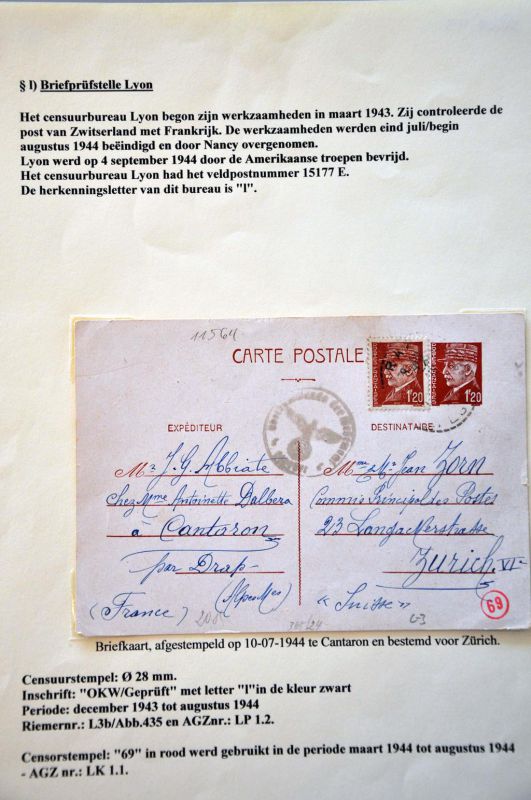 § I) Briefprüfstelle Lyon
Het censuurbureau Lyon begon zijn werkzaamheden in maart 1943. Zij controleerde de
post van Zwitserland met Frankrijk. De werkzaamheden werden eind juli/begin
augustus 1944 beëindigd en door Nancy overgenomen.
Lyon werd op 4 september 1944 door de Amerikaanse troepen bevrijd.
Het censuurbureau Lyon had het veldpostnummer 15177 E.
De herkenningsletter van dit bureau is "l".
11564
CARTE POSTALE
1ᶠ20
1ᶠ20
EXPÉDITEUR
DESTINATAIRE
Mr J. G. Abbiate
Chez Mme Antoinette Dalbera
à Cantaron
par Drap
(Alpes Mes)
(France)
Mme Mr Jean Zorn
Commis Principal des Postes
23 Langackerstrasse
Zurich VI
"Suisse"
69
Briefkaart, afgestempeld op 10-07-1944 te Cantaron en bestemd voor Zürich.
Censuurstempel: Ø 28 mm.
Inschrift: "OKW/Geprüft" met letter "l"in de kleur zwart
Periode: december 1943 tot augustus 1944
Riemernr.: L3b/Abb.435 en AGZnr.: LP 1.2.
Censorstempel: "69" in rood werd gebruikt in de periode maart 1944 tot augustus 1944
- AGZ nr.: LK 1.1.